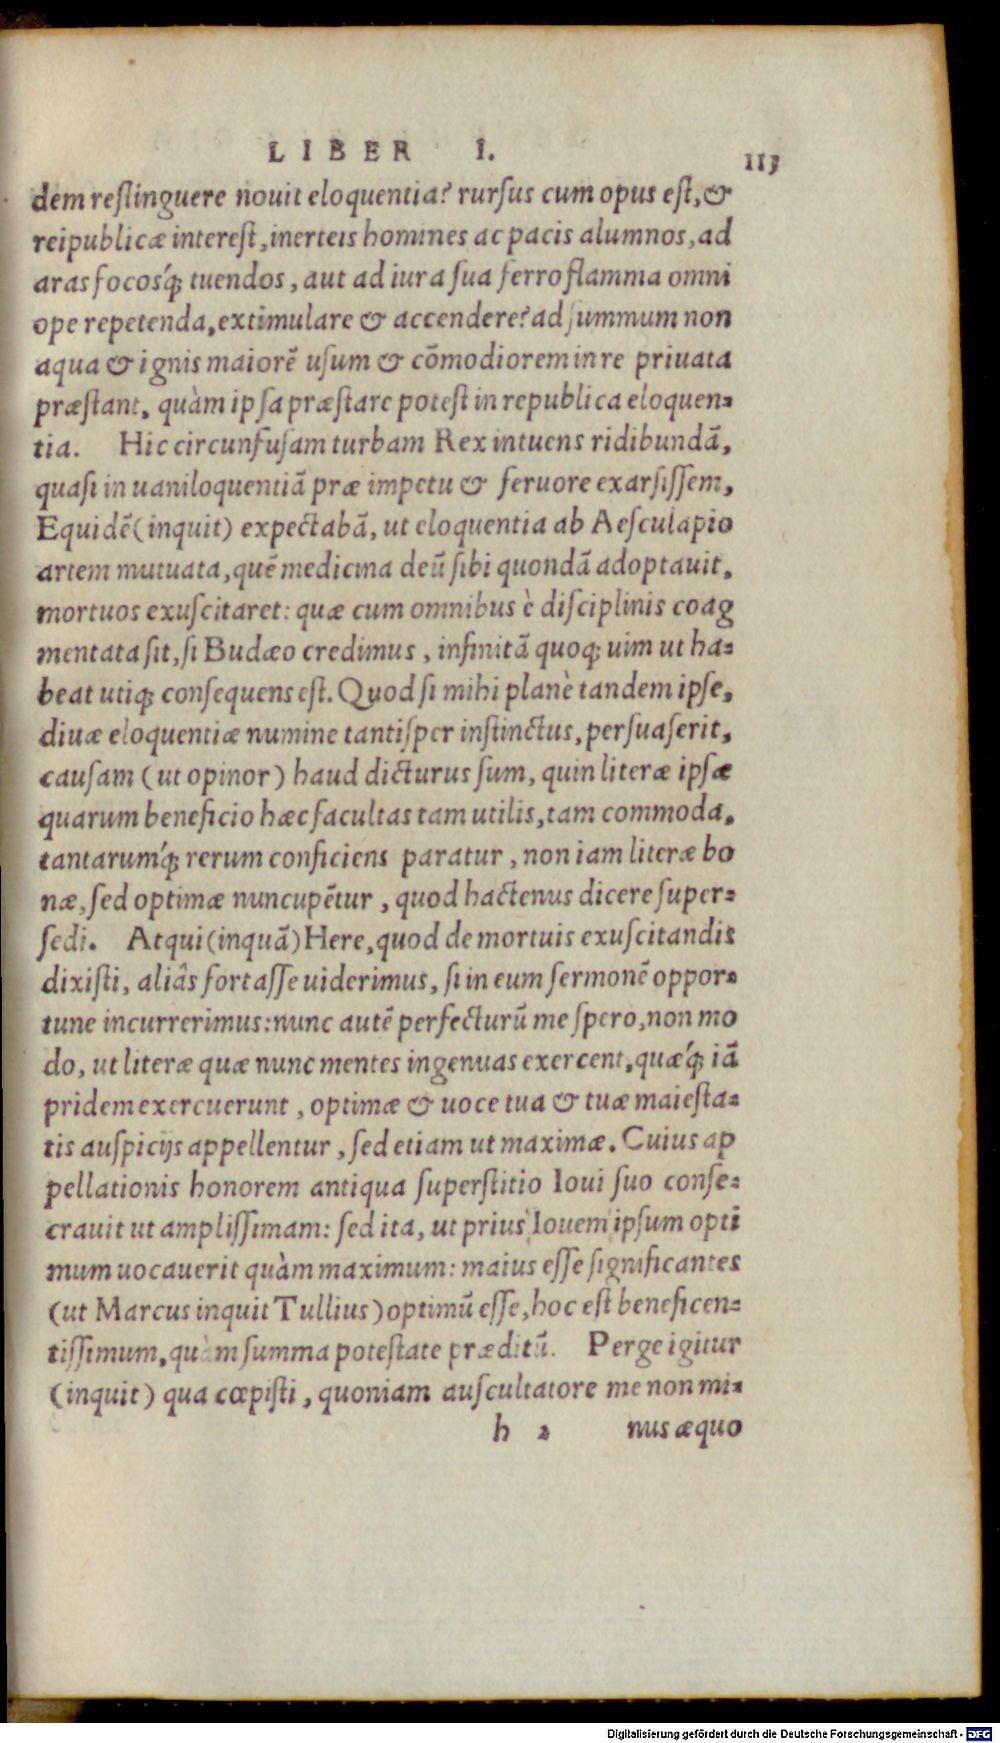 LIBER I. 113
dem restinguere novit eloquentia? rursus cum opus est, &
reipublicæ interest, inerteis homines ac pacis alumnos, ad
aras focosq́; tuendos, aut ad iura sua ferro flamma omni
ope repetenda, extimulare & accendere? ad summum non
aqua & ignis maiorē usum & cōmodiorem in re priuata
præstant, quàm ipsa præstare potest in republica eloquen-
tia. Hic circunfusam turbam Rex intuens ridibundā,
quasi in uaniloquentiā præ impetu & feruore exarsissem,
Equidē (inquit) expectabā, ut eloquentia ab Aesculapio
artem mutuata, quē medicina deū sibi quondā adoptauit,
mortuos exuscitaret: quæ cum omnibus è disciplinis coag
mentata sit, si Budæo credimus, infinitā quoq; uim ut ha-
beat utiq; consequens est. Quod si mihi planè tandem ipse,
diuæ eloquentiæ numine tantisper instinctus, persuaserit,
causam (ut opinor) haud dicturus sum, quin literæ ipsæ
quarum beneficio hæc facultas tam utilis, tam commoda,
tantarumq́; rerum conficiens paratur, non iam literæ bo
næ, sed optimæ nuncupētur, quod hactenus dicere super-
sedi. Atqui (inquā) Here, quod de mortuis exuscitandis
dixisti, aliâs fortasse uiderimus, si in eum sermonē oppor-
tune incurrerimus: nunc autē perfecturū me spero, non mo
do, ut literæ quæ nunc mentes ingenuas exercent, quæq́; iā
pridem exercuerunt, optimæ & uoce tua & tuæ maiesta-
tis auspicijs appellentur, sed etiam ut maximæ. Cuius ap
pellationis honorem antiqua superstitio Ioui suo conse-
crauit ut amplissimam: sed ita, ut prius Iouem ipsum opti
mum uocauerit quàm maximum: maius esse significantes
(ut Marcus inquit Tullius) optimū esse, hoc est beneficen-
tissimum, quàm summa potestate præditū. Perge igitur
(inquit) qua cœpisti, quoniam auscultatore me non mi-
h 2 nus æquo
Digitalisierung gefördert durch die Deutsche Forschungsgemeinschaft - DFG